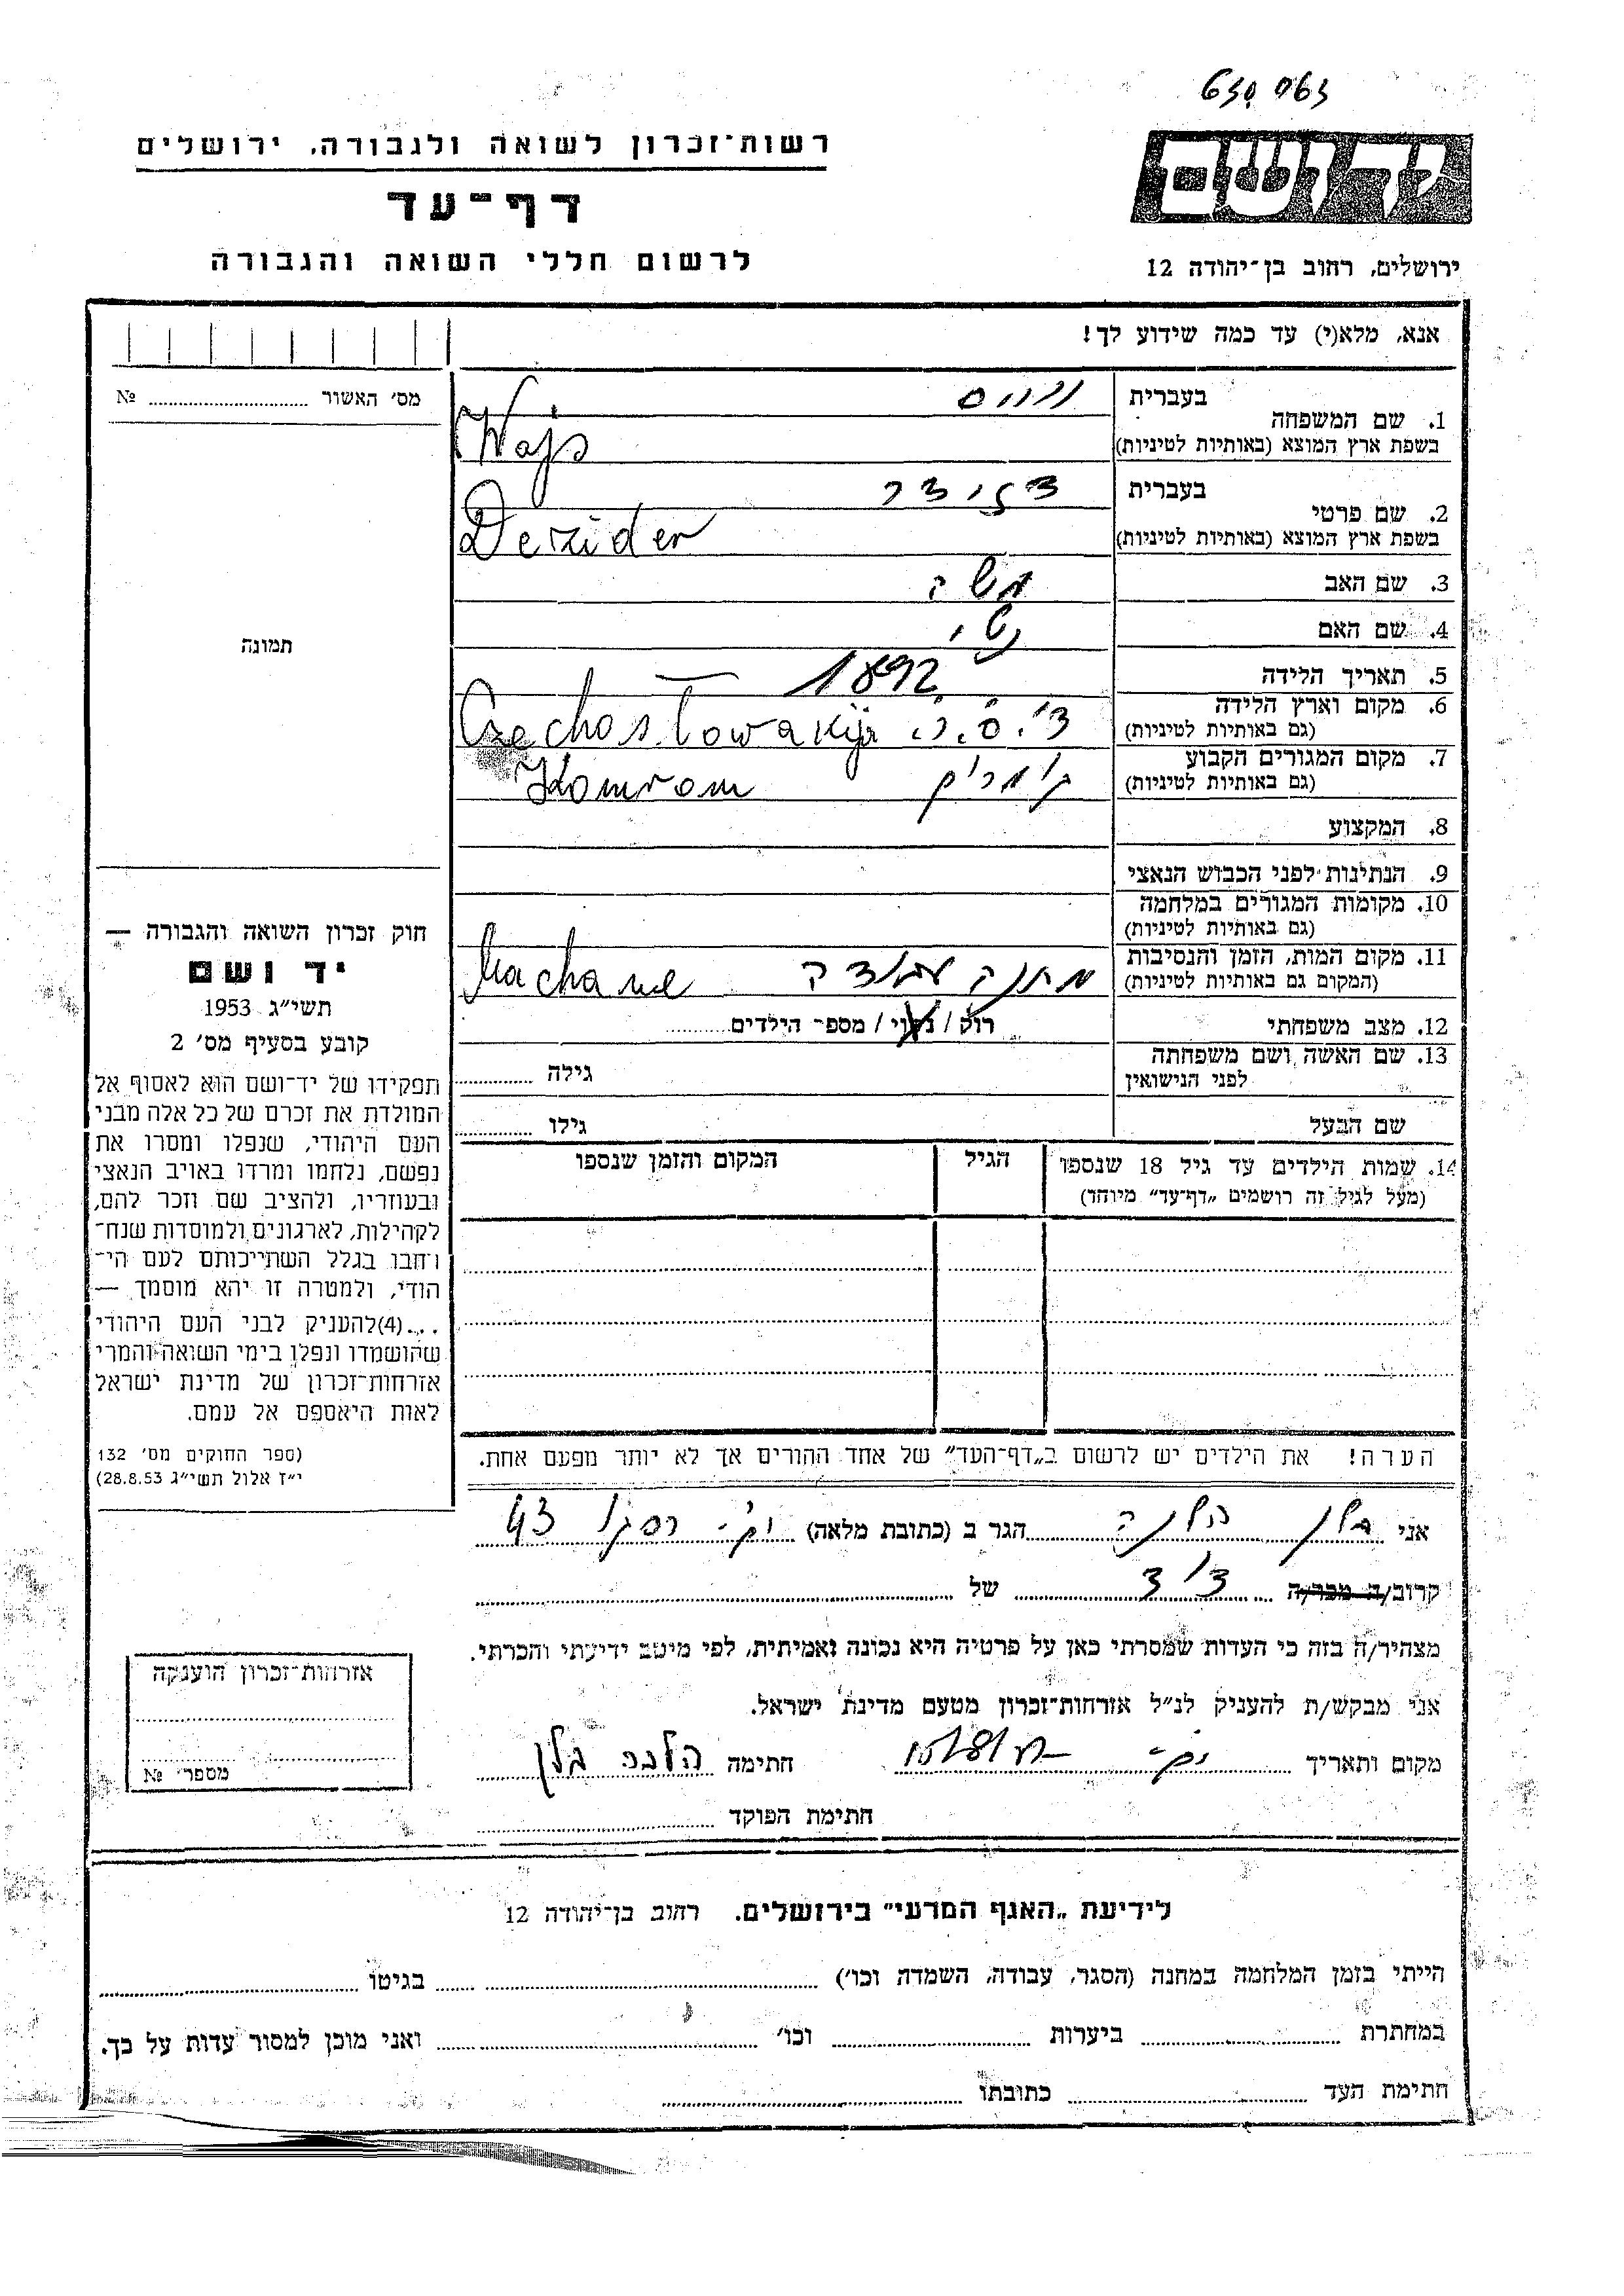 630063
רשות־זכרון לשואה ולגבורה, ירושלים
יד ושם
דף־עד
לרשום חללי השואה והגבורה
ירושלים, רחוב בן־יהודה 12
אנא, מלא(י) עד כמה שידוע לך!
מס׳ האשור № 
1. שם המשפחה
בעברית ווייס
בשפת ארץ המוצא (באותיות לטיניות) Wajs
2. שם פרטי
בעברית דזידר
בשפת ארץ המוצא (באותיות לטיניות) Dezider
3. שם האב משה
4. שם האם
5. תאריך הלידה 1892
6. מקום וארץ הלידה
(גם באותיות לטיניות) צ׳.ס.ר. Czechoslowakija
7. מקום המגורים הקבוע
(גם באותיות לטיניות) Komrom
8. המקצוע
9. הנתינות לפני הכבוש הנאצי
10. מקומות המגורים במלחמה
(גם באותיות לטיניות)
11. מקום המות, הזמן והנסיבות
(המקום גם באותיות לטיניות) מחנה עבודה Machane
12. מצב משפחתי רוק / נשוי / מספר הילדים
13. שם האשה ושם משפחתה
לפני הנישואין גילה
שם הבעל גילו
14. שמות הילדים עד גיל 18 שנספו הגיל המקום והזמן שנספו
(מעל לגיל זה רושמים „דף־עד״ מיוחד)
הערה! את הילדים יש לרשום ב„דף־העד״ של אחד ההורים אך לא יותר מפעם אחת.
תמונה
חוק זכרון השואה והגבורה —
יד ושם
תשי״ג 1953
קובע בסעיף מס׳ 2
תפקידו של יד־ושם הוא לאסוף אל
המולדת את זכרם של כל אלה מבני
העם היהודי, שנפלו ומסרו את
נפשם, נלחמו ומרדו באויב הנאצי
ובעוזריו, ולהציב שם וזכר להם,
לקהילות, לארגונים ולמוסדות שנח־
רבו בגלל השתייכותם לעם הי־
הודי, ולמטרה זו יהא מוסמך —
...(4)להעניק לבני העם היהודי
שהושמדו ונפלו בימי השואה והמרי
אזרחות־זכרון של מדינת ישראל
לאות היאספם אל עמם.
(ספר החוקים מס׳ 132
י״ז אלול תשי״ג 28.8.53)
אני הלנה הגר ב (כתובת מלאה) 43
קרוב/ה מכר/ה דוד של
מצהיר/ה בזה כי העדות שמסרתי כאן על פרטיה היא נכונה ואמיתית, לפי מיטב ידיעתי והכרתי.
אני מבקש/ת להעניק לנ״ל אזרחות־זכרון מטעם מדינת ישראל.
מקום ותאריך חתימה הלנה
חתימת הפוקד
אזרחות־זכרון הוענקה
מספר׳ №
לידיעת „האגף המדעי״ בירושלים. רחוב בן־יהודה 12
הייתי בזמן המלחמה במחנה (הסגר, עבודה, השמדה וכו׳) בגיטו
במחתרת ביערות וכו׳ ואני מוכן למסור עדות על כך.
חתימת העד כתובתו